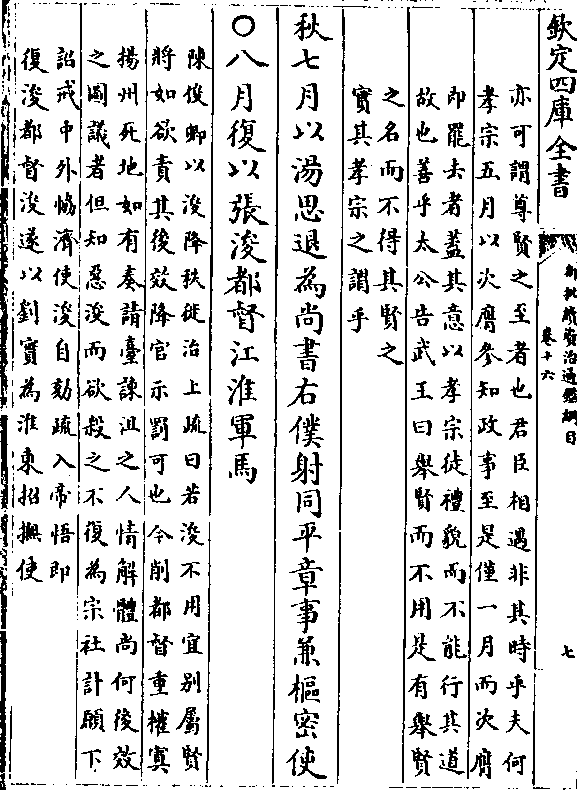 欽定四庫全書
御批續資治通鑑綱目
卷十六
七
亦可謂尊賢之至者也君臣相遇非其時乎夫何
孝宗五月以次膺參知政事至是僅一月而次膺
即罷去者蓋其意以孝宗徒禮貌而不能行其道
故也善乎太公告武王曰舉賢而不用是有舉賢
之名而不得其賢之
實其孝宗之謂乎
秋七月以湯思退為尚書右僕射同平章事兼樞密使
○八月復以張浚都督江淮軍馬
陳俊卿以浚降秩徙治上疏曰若浚不用宜别屬賢
將如欲責其後效降官示罰可也今削都督重權寘
揚州死地如有奏請臺諫沮之人情解體尚何後效
之圖議者但知惡浚而欲殺之不復為宗社計願下
詔戒中外恊濟使浚自効疏入帝悟即
復浚都督浚遂以劉寶為淮東招撫使